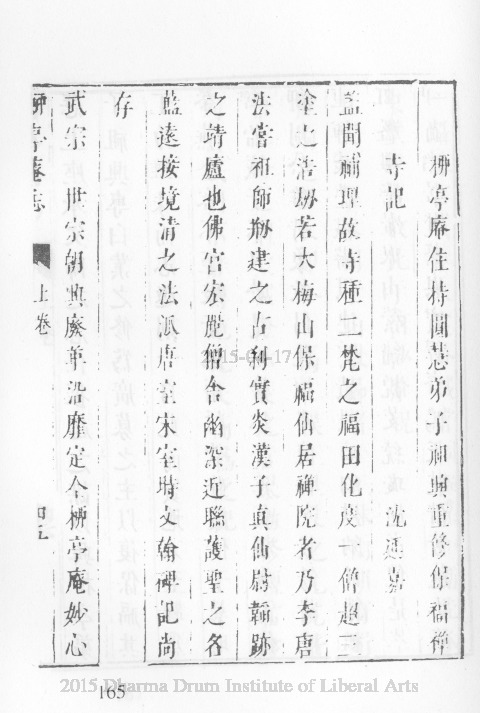 柳亭庵住持圓慧弟子祖興重修保福禪
寺記 沈運嘉
葢聞補理故寺種二梵之福田化度一僧超三
塗之浩劫若大梅山保福仙居禪院者乃李唐
法常祖師剏建之古刹實炎漢子真仙尉韜跡
之靖廬也佛宮宏麗僧舍幽深近聯護聖之名
藍遠接境清之法派唐室宋室時文翰碑記尚
存
武宗 世宗朝興廢革沿靡定今柳亭庵妙心
柳亭庵志 上卷 四五
2015-04-17
2015 Dharma Drum Institute of Liberal Arts
165